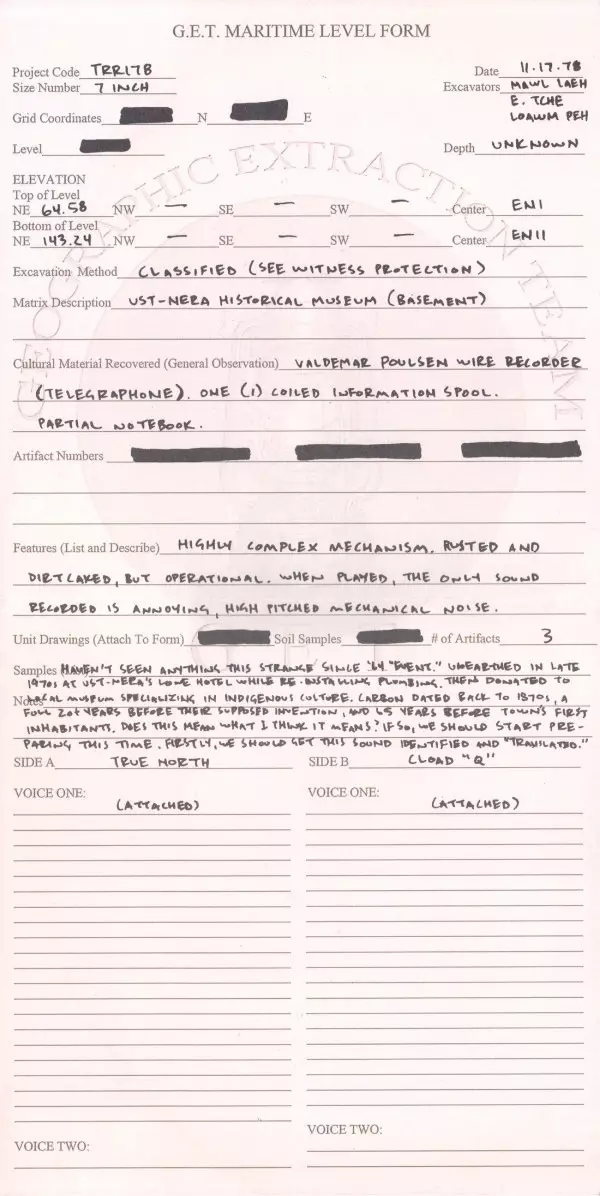 G.E.T. MARITIME LEVEL FORM
Project Code TRR178
Date 11.17.78
Size Number 7 INCH
Excavators MAWL LAEH
E. TCHE
LOAWM PEH
Grid Coordinates N E
Level
Depth UNKNOWN
GEOGRAPHIC EXTRACTION TEAM
ELEVATION
Top of Level
NE 64.58 NW — SE — SW — Center EN I
Bottom of Level
NE 143.24 NW — SE — SW — Center EN II
Excavation Method CLASSIFIED (SEE WITNESS PROTECTION)
Matrix Description UST-NERA HISTORICAL MUSEUM (BASEMENT)
Cultural Material Recovered (General Observation) VALDEMAR POULSEN WIRE RECORDER
(TELEGRAPHONE). ONE (1) COILED INFORMATION SPOOL.
PARTIAL NOTEBOOK.
Artifact Numbers
Features (List and Describe) HIGHLY COMPLEX MECHANISM. RUSTED AND
DIRTCAKED, BUT OPERATIONAL. WHEN PLAYED, THE ONLY SOUND
RECORDED IS ANNOYING, HIGH PITCHED MECHANICAL NOISE.
Unit Drawings (Attach To Form) Soil Samples # of Artifacts 3
G.E.T.
Samples HAVEN'T SEEN ANYTHING THIS STRANGE SINCE '64 "EVENT." UNEARTHED IN LATE
1970s AT UST-NERA'S LONE HOTEL WHILE RE-INSTALLING PLUMBING. THEN DONATED TO
Notes LOCAL MUSEUM SPECIALIZING IN INDIGENOUS CULTURE. CARBON DATED BACK TO 1870s, A
FULL 20+ YEARS BEFORE THEIR SUPPOSED INVENTION, AND 65 YEARS BEFORE TOWN'S FIRST
INHABITANTS. DOES THIS MEAN WHAT I THINK IT MEANS? IF SO, WE SHOULD START PRE-
PARING THIS TIME. FIRSTLY, WE SHOULD GET THIS SOUND IDENTIFIED AND "TRANSLATED."
SIDE A TRUE NORTH
SIDE B CLOAD "Q"
VOICE ONE:
(ATTACHED)
VOICE ONE:
(ATTACHED)
VOICE TWO:
VOICE TWO: